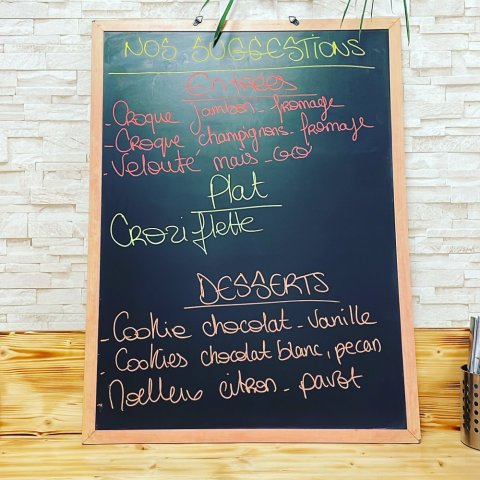 NOS SUGGESTIONS
Entrées
- Croque jambon - fromage
- Croque champignons - fromage
- Velouté maïs - coco
Plat
Croziflette
DESSERTS
- Cookie chocolat - vanille
- Cookies chocolat blanc, pecan
Moelleux citron - pavot